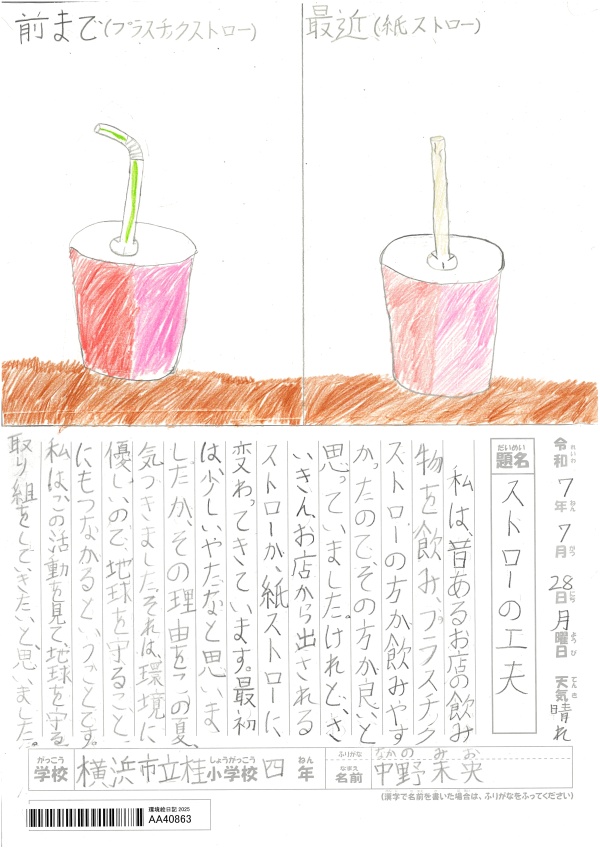 前まで(プラスチックストロー)
最近(紙ストロー)
令和7年7月28日月曜日 天気晴れ
れいわ ねん がつ にち ようび てんき
だいめい
題名
ストローの工夫
私は、昔あるお店の飲み
物を飲み、プラスチック
ストローの方が飲みやす
かったので、その方が良いと
思っていました。けれど、さ
いきん、お店から出される
ストローが、紙ストローに
変わってきています。最初
は、少しいやだなと思いま
したが、その理由をこの夏、
気づきました。それは、環境に
優しいので、地球を守ること
にもつながるということです。
私は、この活動を見て、地球を守る
取り組をしていきたいと、思いました。
がっこう しょうがっこう ねん
学校 横浜市立桂小学校 四年
ふりがな なかの みお
なまえ
名前 中野未央
(漢字で名前を書いた場合は、ふりがなをふってください)
環境絵日記 2025
AA40863